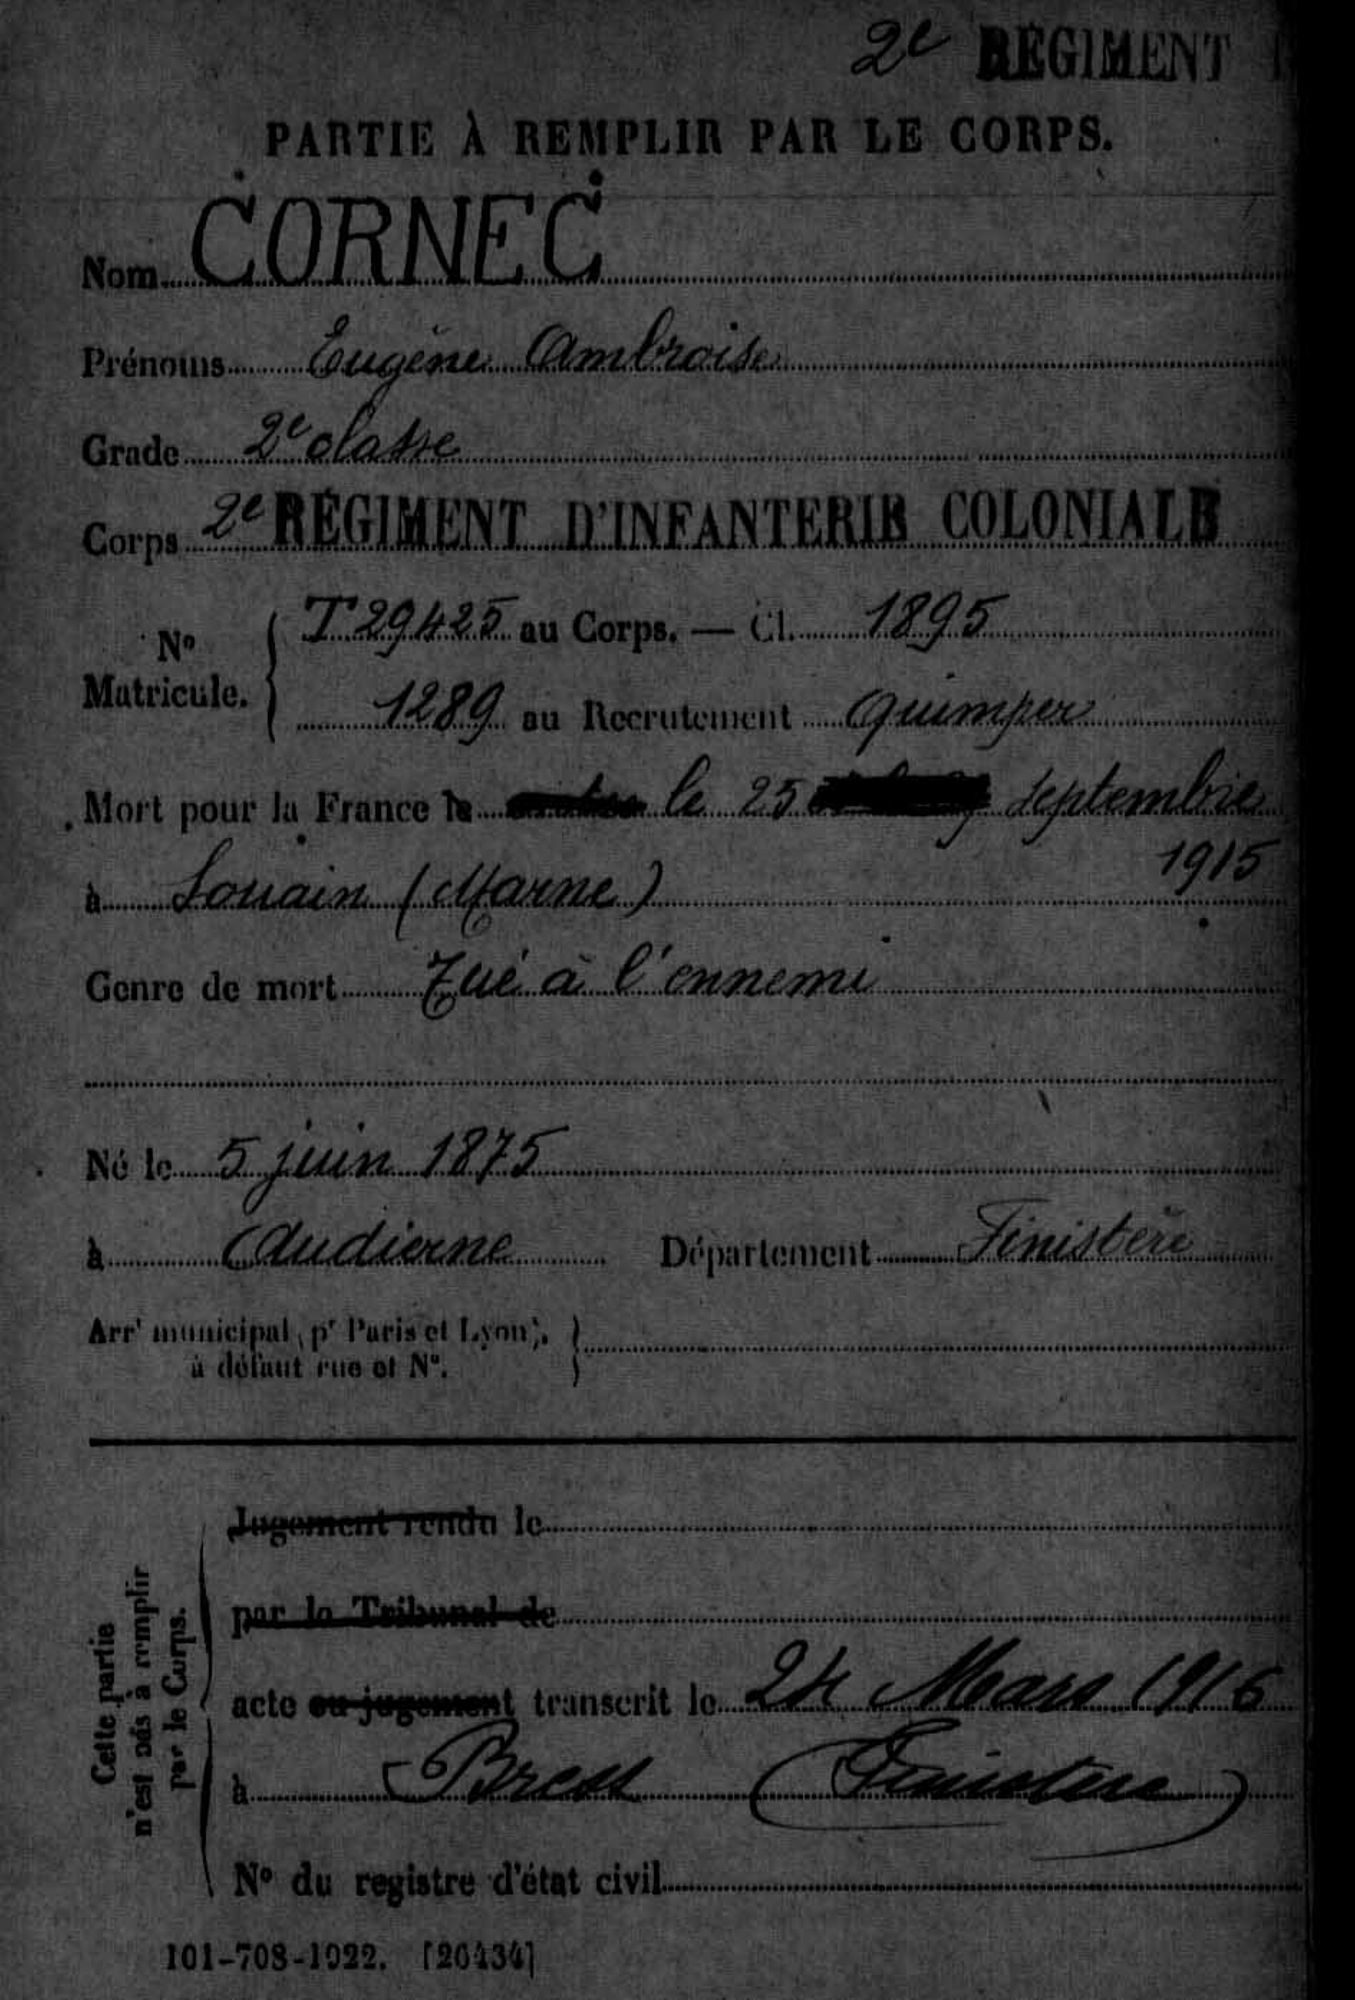 2e RÉGIMENT
PARTIE À REMPLIR PAR LE CORPS.
Nom CORNEC
Prénoms Eugène Ambroise
Grade 2e classe
Corps 2e RÉGIMENT D'INFANTERIE COLONIALE
No Matricule. { T 29425 au Corps. — Cl. 1895
1289 au Recrutement Quimper
Mort pour la France le le 25 septembre
1915
à Souain (Marne)
Genre de mort Tué à l'ennemi
Né le 5 juin 1875
à Audierne Département Finistère
Arrt municipal (pr Paris et Lyon), }
à défaut rue et No.
Cette partie
n'est pas à remplir
par le Corps.
Jugement rendu le
par le Tribunal de
acte ou jugement transcrit le 24 Mars 1916
à Brest (Finistere)
No du registre d'état civil
101-708-1922. [26434]